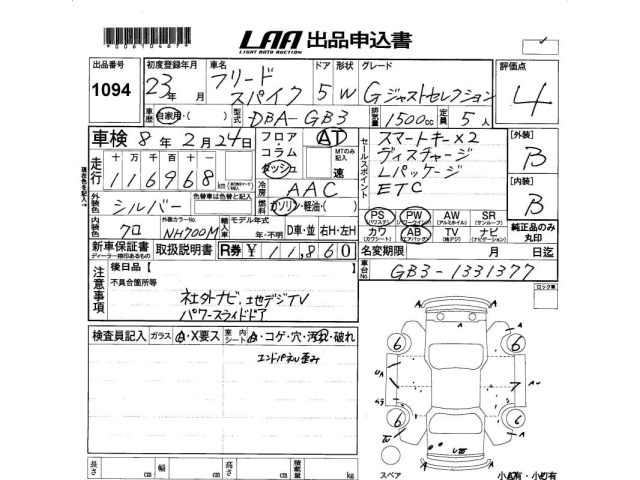 LAA 出品申込書
LIGHT AUTO AUCTION
出品番号 初度登録年月 車名 ドア 形状 グレード 評価点
1094 23年 月 フリードスパイク 5 W Gジャストセレクション 4
車歴 自家用・( ) 型式 DBA-GB3 排気量 1500cc 定員 5人
車検 8年2月24日 フロア・コラム・ダッシュ AT MTのみ記入 速
セールスポイント スマートキー×2
ディスチャージ
Lパッケージ
ETC
[外装] B
[内装] B
走行 十万千百十 116968 km
冷房 AAC
外装色 シルバー 色替車は色替と記入 燃料 ガソリン・軽油・( )
内装色 クロ 外装カラーNo. NH700M 輸入車 モデル年式 年・不明 D車・並 右H・左H
PS (パワステ) PW (パワーウインド) AW (アルミホイル) SR (サンルーフ)
カワ (カワシート) AB (エアバッグ) TV (地デジ) ナビ (ナビゲーション)
純正品のみ丸印
新車保証書 ディーラー捺印あるもの 取扱説明書 R券 ¥11,860
名変期限 月 日迄
車台No. GB3-1331377
注意事項 後日品【
不具合箇所等
社外ナビ、地デジTV
パワースライドドア
ロック車
検査員記入 ガラス A・X要ス 室内シート A・コゲ・穴・汚れ・破れ
エンドパネル歪み
6 6
A A
UA A
6 6
スペア
長さ cm 幅 cm 高さ cm 積載量 kg
小A有・小U有